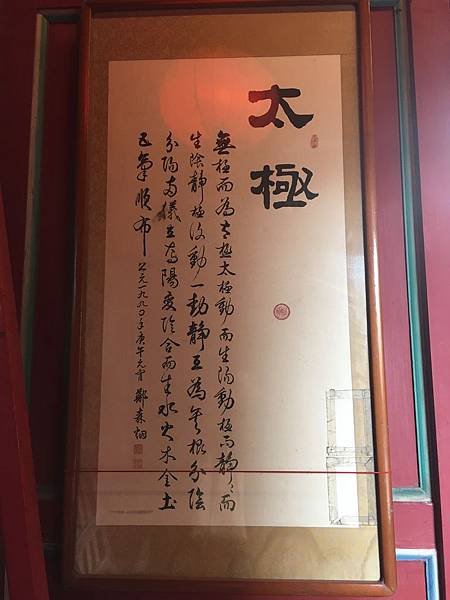 太極
無極而為太極太極動而生陽動極而靜〻而
生陰靜極復動一動靜互為其根分陰
分陽兩儀立焉陽變陰合而生水火木金土
五氣順布 公元一九九〇年庚午元宵 鄭森